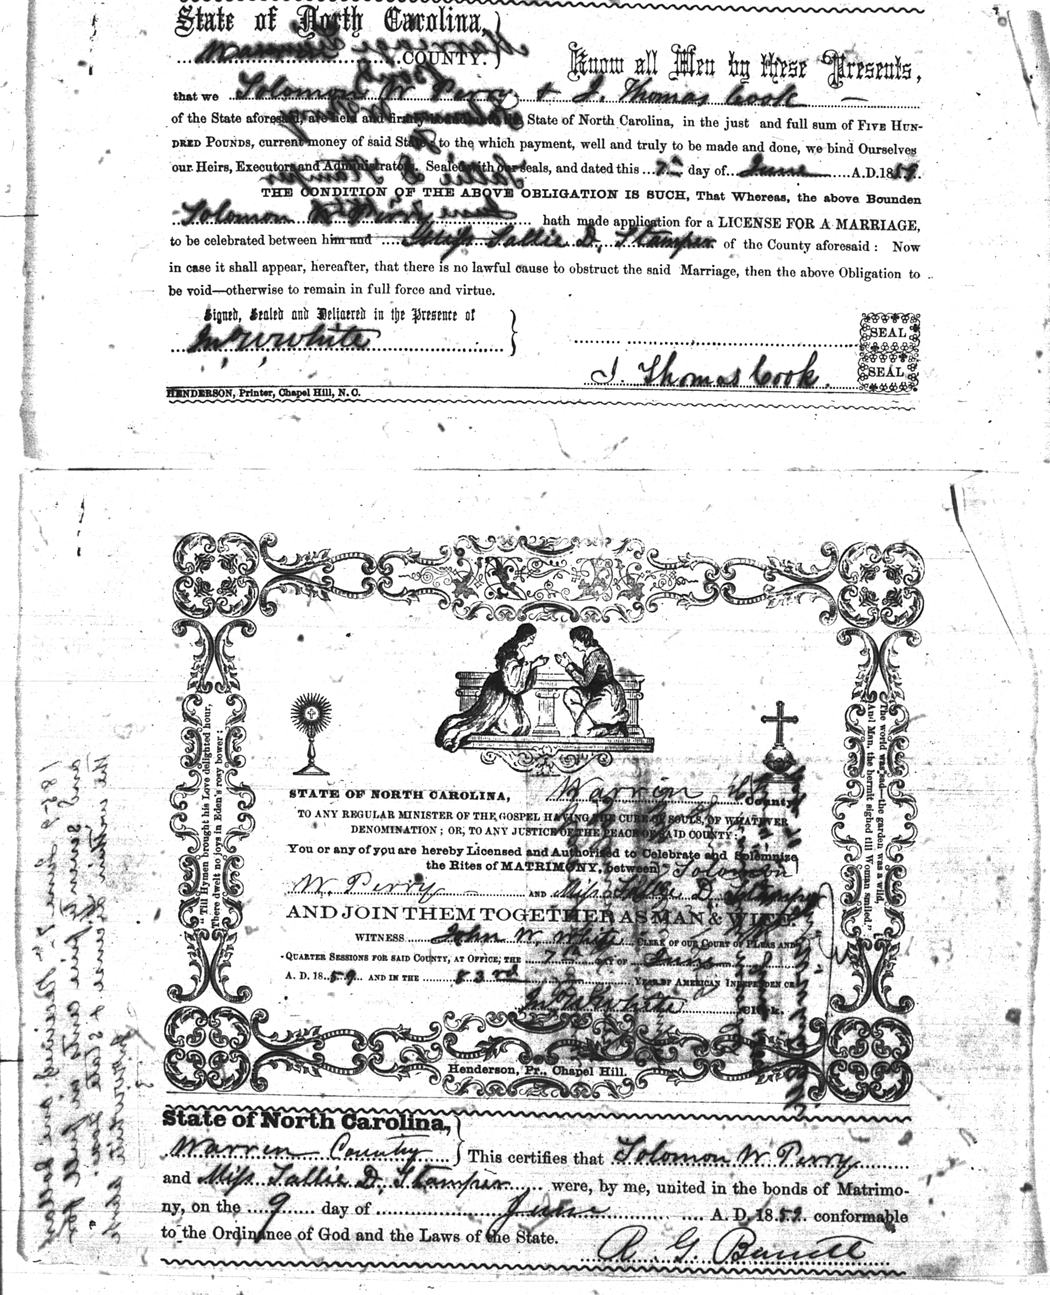 State of North Carolina,
Warren COUNTY.
Know all Men by these Presents,
that we Solomon W Perry & J. Thomas Cook
of the State aforesaid, are held and firmly State of North Carolina, in the just and full sum of FIVE HUN-
DRED POUNDS, current money of said State to the which payment, well and truly to be made and done, we bind Ourselves
our Heirs, Executors and Administrators. Sealed with our seals, and dated this 7th day of June A.D. 1859.
THE CONDITION OF THE ABOVE OBLIGATION IS SUCH, That Whereas, the above Bounden
Solomon W Perry hath made application for a LICENSE FOR A MARRIAGE,
to be celebrated between him and Miss Sallie D. Stamper of the County aforesaid: Now
in case it shall appear, hereafter, that there is no lawful cause to obstruct the said Marriage, then the above Obligation to
be void—otherwise to remain in full force and virtue.
Signed, Sealed and Delivered in the Presence of
Jno W White
SEAL
J. Thomas Cook.
SEAL
HENDERSON, Printer, Chapel Hill, N. C.
"Till Hymen brought his Love delighted hour,
There dwelt no joys in Eden's rosy bower:
The world was sad—the garden was a wild,
And Man, the hermit sighed till Woman smiled."
STATE OF NORTH CAROLINA, Warren County
TO ANY REGULAR MINISTER OF THE GOSPEL HAVING THE CURE OF SOULS, OF WHATEVER
DENOMINATION; OR, TO ANY JUSTICE OF THE PEACE OF SAID COUNTY:
You or any of you are hereby Licensed and Authorised to Celebrate and Solemnize
the Rites of MATRIMONY, between Solomon
W. Perry AND Miss Sallie D. Stamper
AND JOIN THEM TOGETHER AS MAN & WIFE.
WITNESS John W. White CLERK OF OUR COURT OF PLEAS AND
QUARTER SESSIONS FOR SAID COUNTY, AT OFFICE, THE 7th DAY OF June
A. D. 1859 AND IN THE 83rd YEAR OF AMERICAN INDEPENDENCE
Jno W White CLERK.
Henderson, Pr., Chapel Hill.
State of North Carolina,
Warren County This certifies that Solomon W Perry
and Miss Sallie D. Stamper were, by me, united in the bonds of Matrimo-
ny, on the 9 day of June A. D. 1859 conformable
to the Ordinance of God and the Laws of the State.
R. G. Barrett